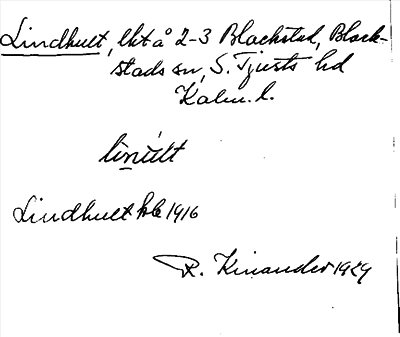 Lindhult, lht å 2-3 Blackstad, Black-
stads sn, S. Tjusts hd
Kalm. l.
linult
Lindhult kb 1916
R. Kinander 1929